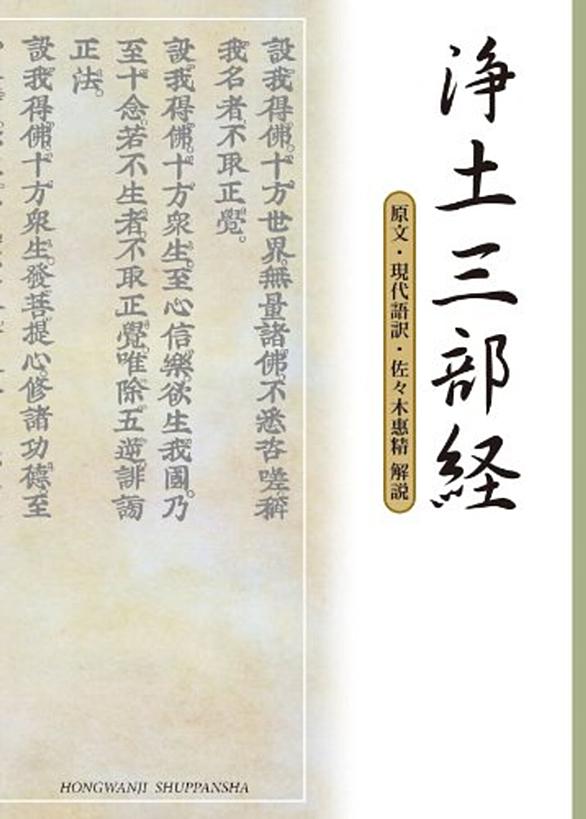 浄土三部経
原文・現代語訳・佐々木惠精 解説
設我得佛。十方世界。無量諸佛。不悉咨嗟稱
我名者。不取正覺。
設我得佛。十方衆生。至心信樂。欲生我國。乃
至十念。若不生者。不取正覺。唯除五逆誹謗
正法。
設我得佛。十方衆生。發菩提心。修諸功德。至
HONGWANJI SHUPPANSHA